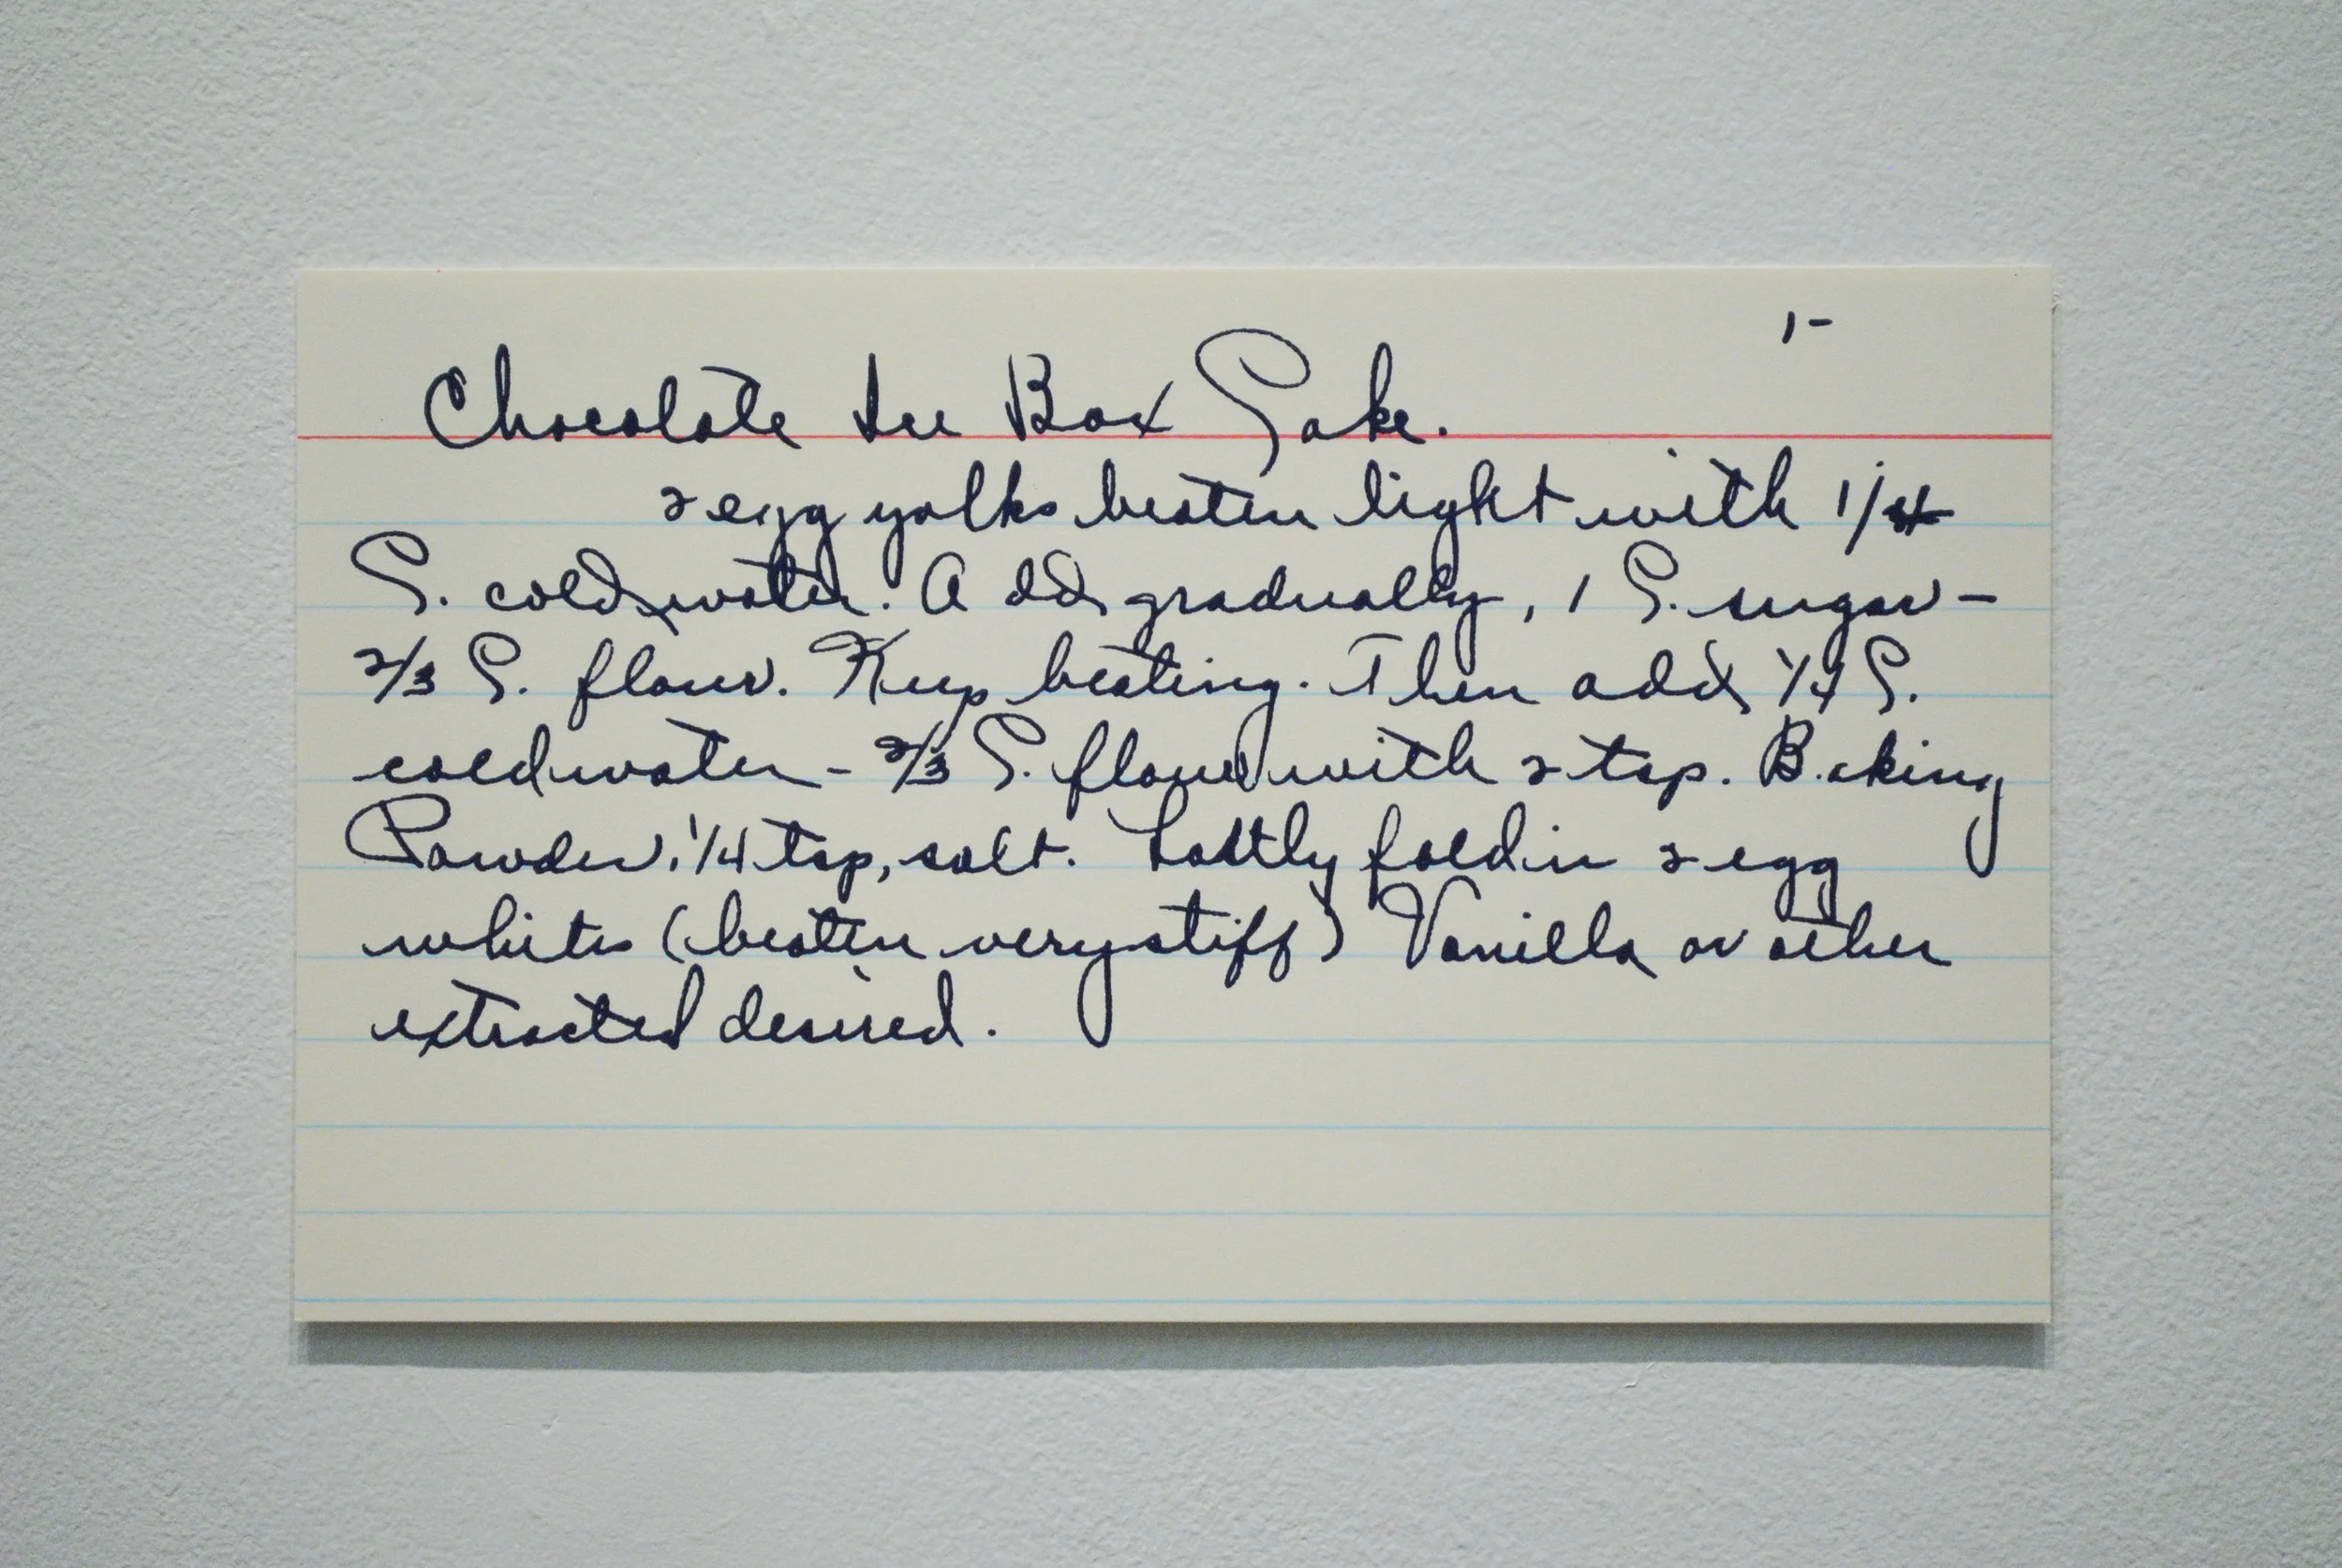 1-
Chocolate Ice Box Cake.
2 egg yolks beaten light with 1/4
C. cold water. Add gradually, 1 C. sugar –
2/3 C. flour. Keep beating. Then add 1/4 C.
cold water – 2/3 C. flour with 2 tsp. Baking
Powder. 1/4 tsp, salt. Lastly fold in 2 egg
whites (beaten very stiff) Vanilla or other
extracted desired.